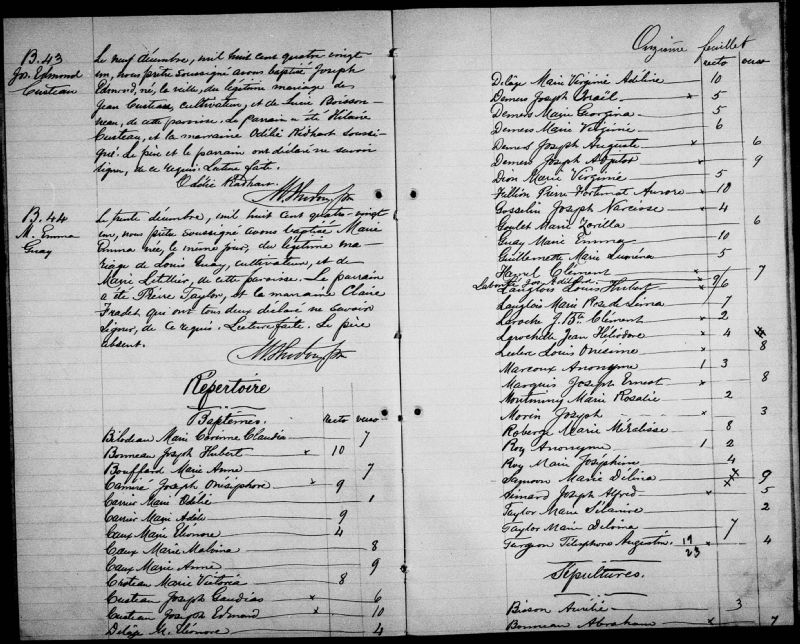 B.43
Jos. Edmond
Custeau
Le neuf décembre, mil huit cent quatre vingt
un, nous prêtre soussigné avons baptisé Joseph
Edmond, né, la veille, du légitime mariage de
Jean Custeau, cultivateur, et de Lucie Boisson-
neau, de cette paroisse. Le parrain a été Hilaire
Custeau, et la marraine Odélie soussi-
gné. Le père et le parrain ont déclaré ne savoir
signer, de ce requis. Lecture faite.
Odélie
B.44
M. Emma
Guay
Le trente décembre, mil huit cent quatre-vingt
un, nous prêtre soussigné avons baptisé Marie
Emma née, le même jour, du légitime ma-
riage de Louis Guay, cultivateur, et de
Marie Letellier, de cette paroisse. Le parrain
a été Pierre Taylor, et la marraine Claire
Fradet qui ont tous deux déclaré ne savoir
signer, de ce requis. Lecture faite. Le père
absent.
Répertoire
Baptêmes. recto verso
Bilodeau Marie Corinne Claudia 7
Bonneau Joseph Hubert x 10
Bouffard Marie Anne 7
Camiré Joseph Onésiphore x 9
Carrier Marie Odélie 1
Carrier Marie Adèle 9
Caux Marie Eléonore 4
Caux Marie Malvina 8
Caux Marie Anne 9
Croteau Marie Victoria 8
Custeau Joseph Gaudias x 6
Custeau Joseph Edmond x 10
Délâge M. Eléonore 4
Onzième feuillet
recto verso
Délâge Marie Virginie Adéline 10
Demers Joseph Israël x 5
Demers Marie Georgina 5
Demers Marie Virginie 6
Demers Joseph Auguste x 6
Demers Joseph x 9
Dion Marie Virginie 5
Fillion Pierre Fortunat Aurore x 10
Gosselin Joseph Narcisse x 4
Goulet Marie Zorilla 6
Guay Marie Emma 10
Guillemette Marie 5
Hamel Clément x 7
Jos. x 9
Langlois Louis Hubert x 6
Langlois Marie Rose de Lima 7
Laroche J. Bte Clément x 2
Larochelle Jean Héliodore x 4
Leclerc Louis Onésime x 8
Marcoux Anonyme 1 3
Marquis Joseph Ernest x 8
Montminy Marie Rosalie 2
Morin Joseph x 3
Roberge Marie Méralisse 8
Roy Anonyme 1 2
Roy Marie Joséphine 4
Samson Marie Délina x 9
Simard Joseph Alfred x 5
Taylor Marie Célanire 2
Taylor Marie Delvina 7
Turgeon Télesphore Augustin 19 x 4
23
Sépultures.
Bison Aurélie 3
Bonneau Abraham x 7